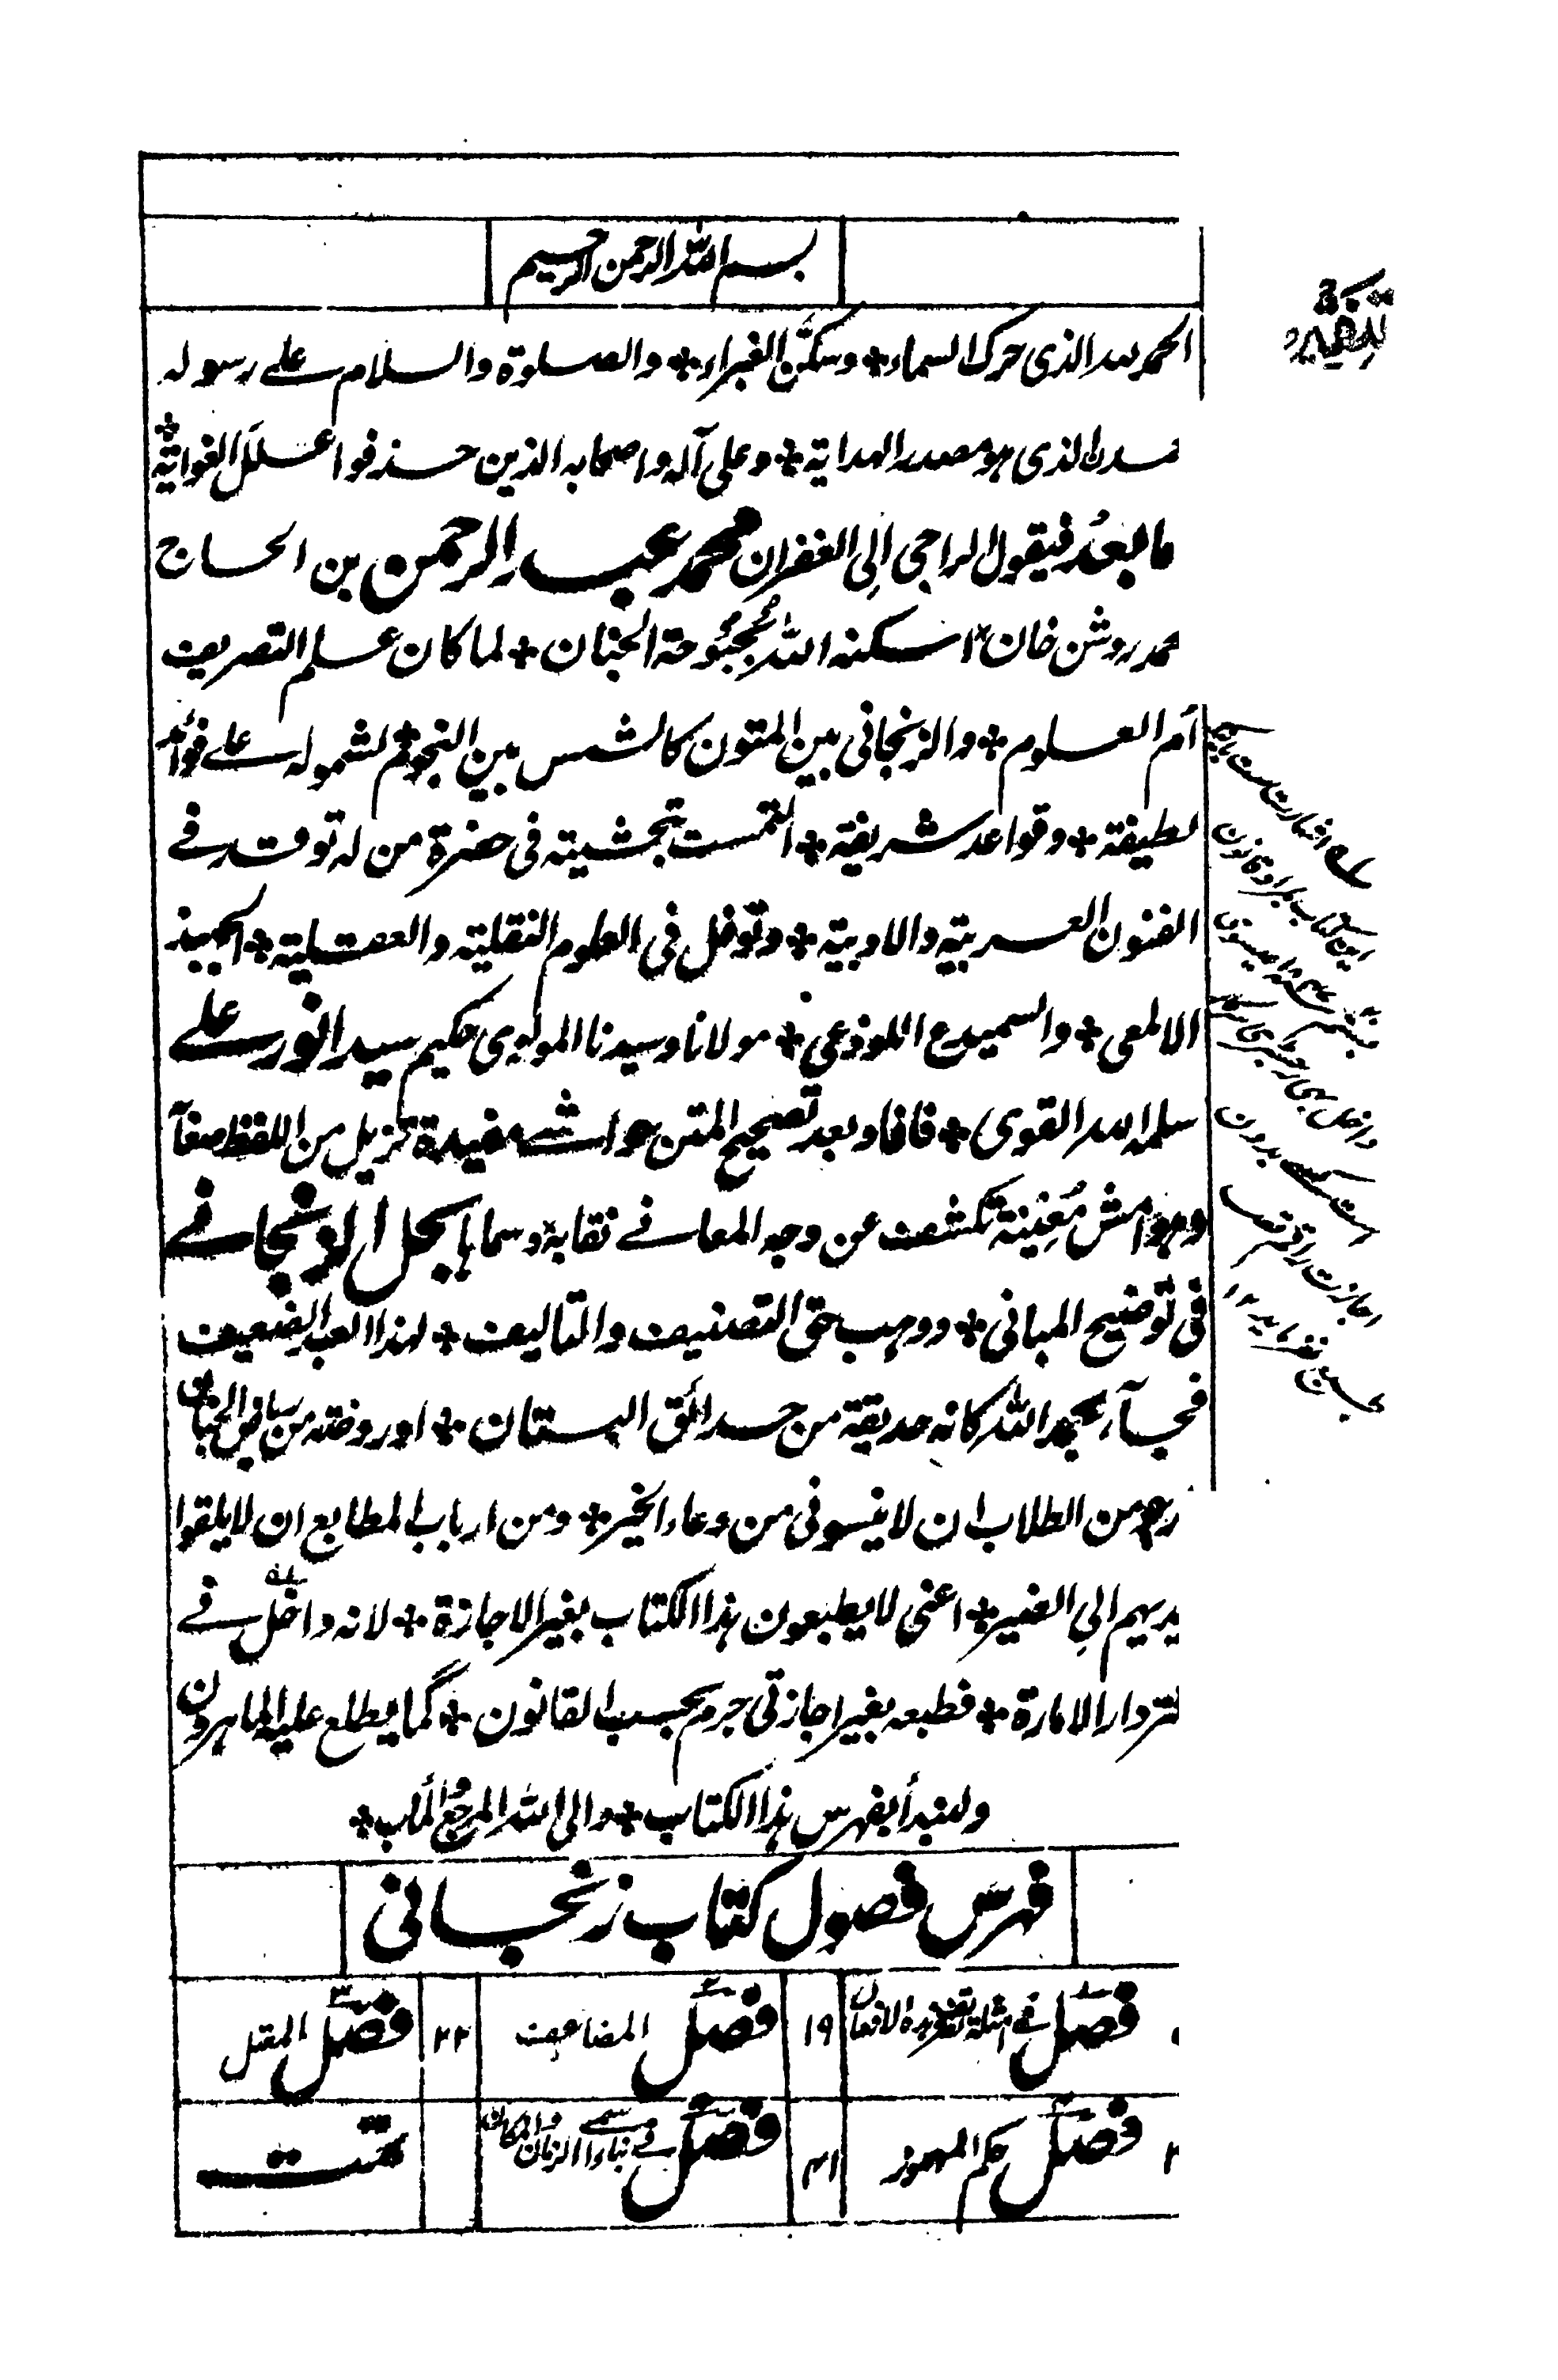 بسم الله الرحمن الرحيم
الحمد لله الذى حرك السماء * وسكّن الغبراء * والصلوة والسلام على رسوله
الذى هو مصدر الهداية * وعلى آله واصحابه الذين حذفوا علل الغواية *
ما بعدُ فيقول الراجى الى الغفران محمد عبد الرحمن بن الحاج
محمد روشن خان اسكنه الله بُحبُوحة الجنان * لما كان علم التصريف
أم العلوم * والزنجانى بين المتون كالشمس بين النجوم * لشموله على فوائد
لطيفة * وقواعد شريفة * التمست تحشيته فى حضرة من له توقد فى
الفنون العربية والادبية * وتوغل فى العلوم النقلية والعقلية *
الالمعى * والسميدع اللوذعى * مولانا وسيدنا المولوى حكيم سيد انور على
سلمه الله القوى * فافاد بعد تصحيح المتن حواشى مفيدة تزيل من اللفظ
وهوامش مُغنِية تكشف عن وجه المعانى نقابه * وسماها بحل الزنجانى
فى توضيح المبانى * ووهب حق التصنيف والتاليف * لهذا العبد الضعيف
فجآء بحمد الله كانه حديقة من حدائق البستان * او روضة من رياض الجنان
من الطلاب ان لا ينسونى من دعاء الخير * ومن ارباب المطابع ان لا يلقوا
يديهم الى الضير * اعنى لا يطبعون هذا الكتاب بغير الاجازة * لانه داخل فى
دار الامارة * فطبعه بغير اجازتى جرم بحسب القانون * كما يطلع عليه الماهرون
ولنبدأ بفهرس هذا الكتاب * والى الله المرجع والمأب *
فهرس فصول كتاب زنجانى
فصل فى امثلة تصريف هذه الافعال ١٩ فصل المضاعف ٢٢ فصل المعتل
فصل حكم المهموز ٤١ فصل فى بناء اسمى الزمان والمكان تمت